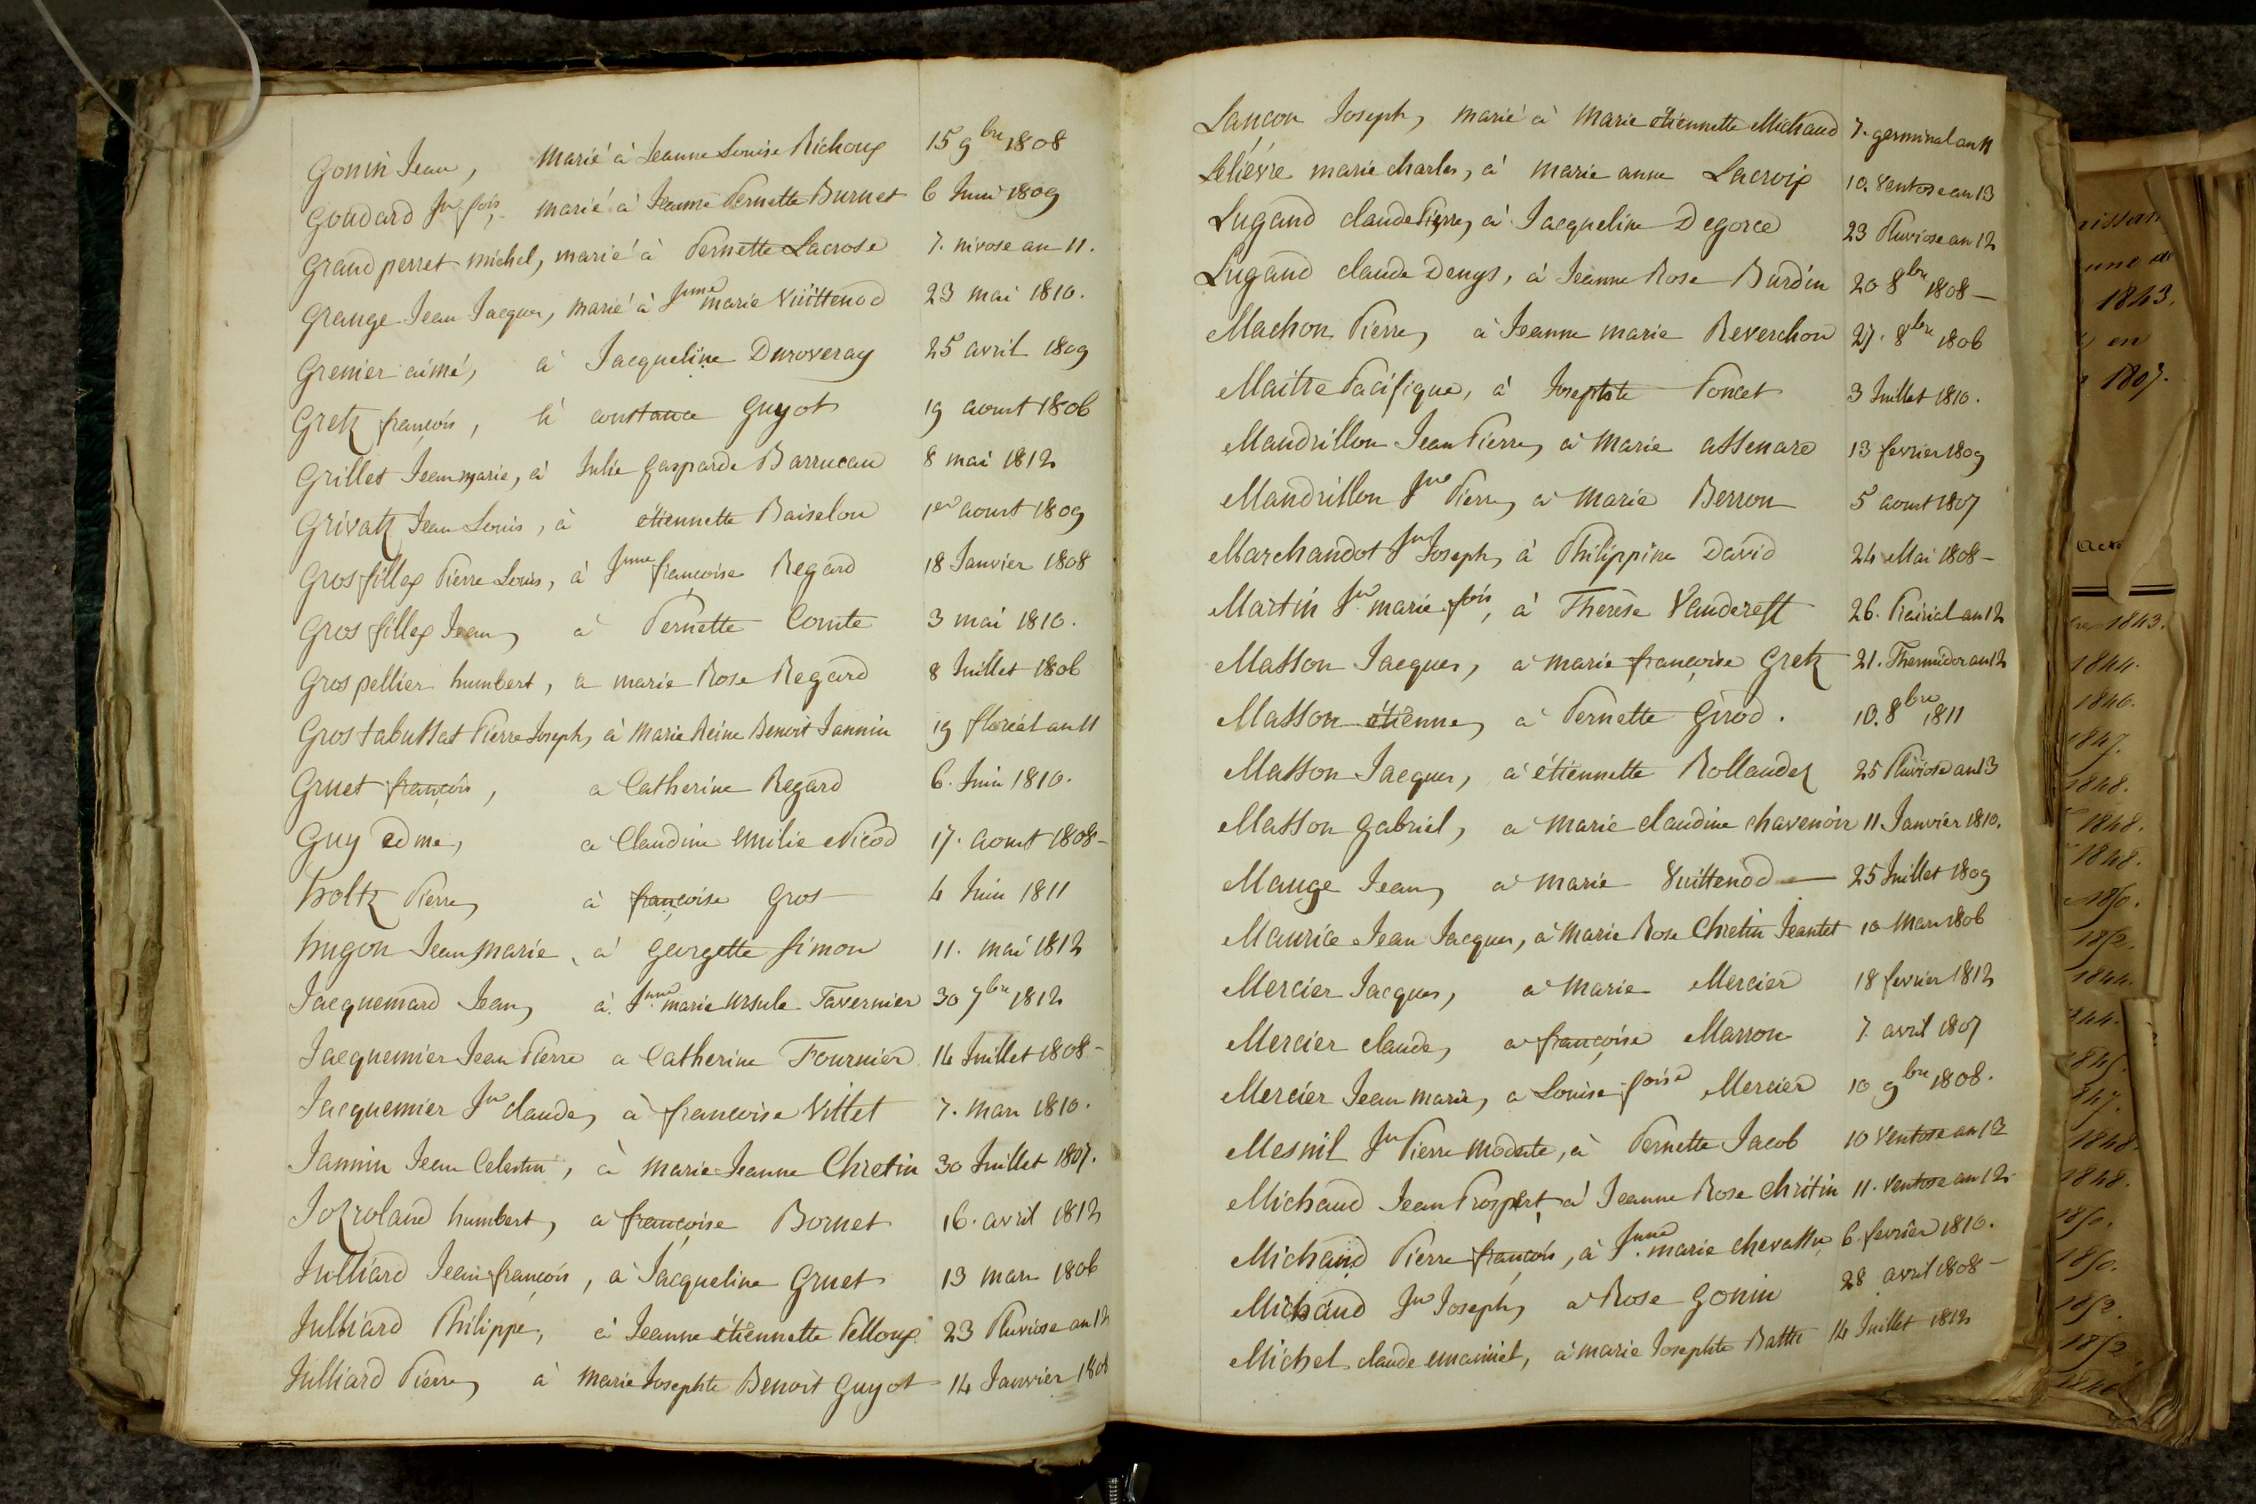 Gonin Jean, marié à Jeanne Louise Richoux 15 9bre 1808
Goudard Jn fois, marié à Jeanne Pernette Burnet 6 Juin 1809
Grand perret michel, marié à Pernette Lacrose 7. nivose an 11.
Grange Jean Jacques, marié à Jnne marie Vuittenod 23 mai 1810.
Grenier aimé, à Jacqueline Duroveray 25 avril 1809
Gretz françois, à constance Guyot 19 aoust 1806
Grillet Jean marie, à Julie gasparde Barrucau 8 mai 1812
Grivatz Jean Louis, à étiennette Baiselon 1er aoust 1809
Gros fillex Pierre Louis, à Jnne françoise Regard 18 Janvier 1808
Gros fillex Jean, à Pernette Comte 3 mai 1810.
Gros pellier humbert, a marie Rose Regard 8 Juillet 1806
Gros tabussat Pierre Joseph, à Marie Reine Benoit Jannin 19 floréal an 11
Gruet françois, a Catherine Regard 6. Juin 1810.
Guy edme, a Claudine emilie Nicod 17. aoust 1808-
holtz Pierre, à françoise Gros 4 Juin 1811
hugon Jean marie, à georgette simon 11. mai 1812
Jacquemard Jean, à Jnne marie ursule Tavernier 30 7bre 1812
Jacquemier Jean Pierre a Catherine Fournier 14 Juillet 1808-
Jacquemier Jn claude, à françoise Vittet 7. mars 1810.
Jannin Jean Celestin, à marie Jeanne Chretin 30 Juillet 1807.
Jozroland humbert, a françoise Bornet 16. avril 1812
Julliard Jean françois, à Jacqueline Gruet 13 mars 1806
Julliard Philippe, à Jeanne étiennette Pelloux 23 Pluviose an 12
Julliard Pierre, à marie Josephte Benoit Guyot 14 Janvier
Lançon Joseph, marié à marie étiennette Michaud 7. germinal an 11
Leliévre marie charles, à marie anne Lacroix 10. Ventose an 13
Lugand claude Pierre, à Jacqueline Degorce 23 Pluviose an 12
Lugand claude Denys, à Jeanne Rose Burdin 20 8bre 1808-
Machon Pierre, à Jeanne marie Reverchon 27. 8bre 1806
Maitre Pacifique, à Josephte Poncet 3 Juillet 1810.
Mandrillon Jean Pierre, à marie assenare 13 fevrier 1809
Mandrillon Jn Pierre, à marie Berron 5 aoust 1807
Marchandot Jn Joseph, à Philippine David 24 Mai 1808-
Martin Jn marie fois, à Therèse Vanderest 26. Prairial an 12
Masson Jacques, a marie françoise Gretz 21. Thermidor an 12
Masson étienne, a Pernette Girod. 10. 8bre 1811
Masson Jacques, à étiennette Rollandez 25 Pluviose an 13
Masson gabriel, a marie claudine chavenoir 11 Janvier 1810.
Mauge Jean, a marie Vuittenod 25 Juillet 1809
Maurice Jean Jacques, à marie Rose Chretin Jeantet 10 Mars 1806
Mercier Jacques, a marie Mercier 18 fevrier 1812
Mercier claude, a françoise Marron 7 avril 1807
Mercier Jean marie, a Louise foise Mercier 10 9bre 1808.
Mesnil Jn Pierre modeste, à Pernette Jacob 10 Ventose an 12
Michaud Jean Prospert à Jeanne Rose chritin 11. Ventose an 12
Michaud Pierre françois, à Jnne marie chevassu 6 fevrier 1810.
Michaud Jn Joseph, a Rose gonin 28 avril 1808-
Michel claude emaniel, à marie Josephte Battu 14 Juillet 1812
1843.
en
1807.
1843.
1844.
1846.
1847.
1848.
1848.
1848.